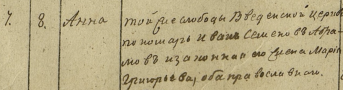 7. 8. Анна той же слободы Введенской церкви
пономарь Иванъ Семеновъ Абра
мовъ и законная его жена Марія
Григорьева, оба православнаго.